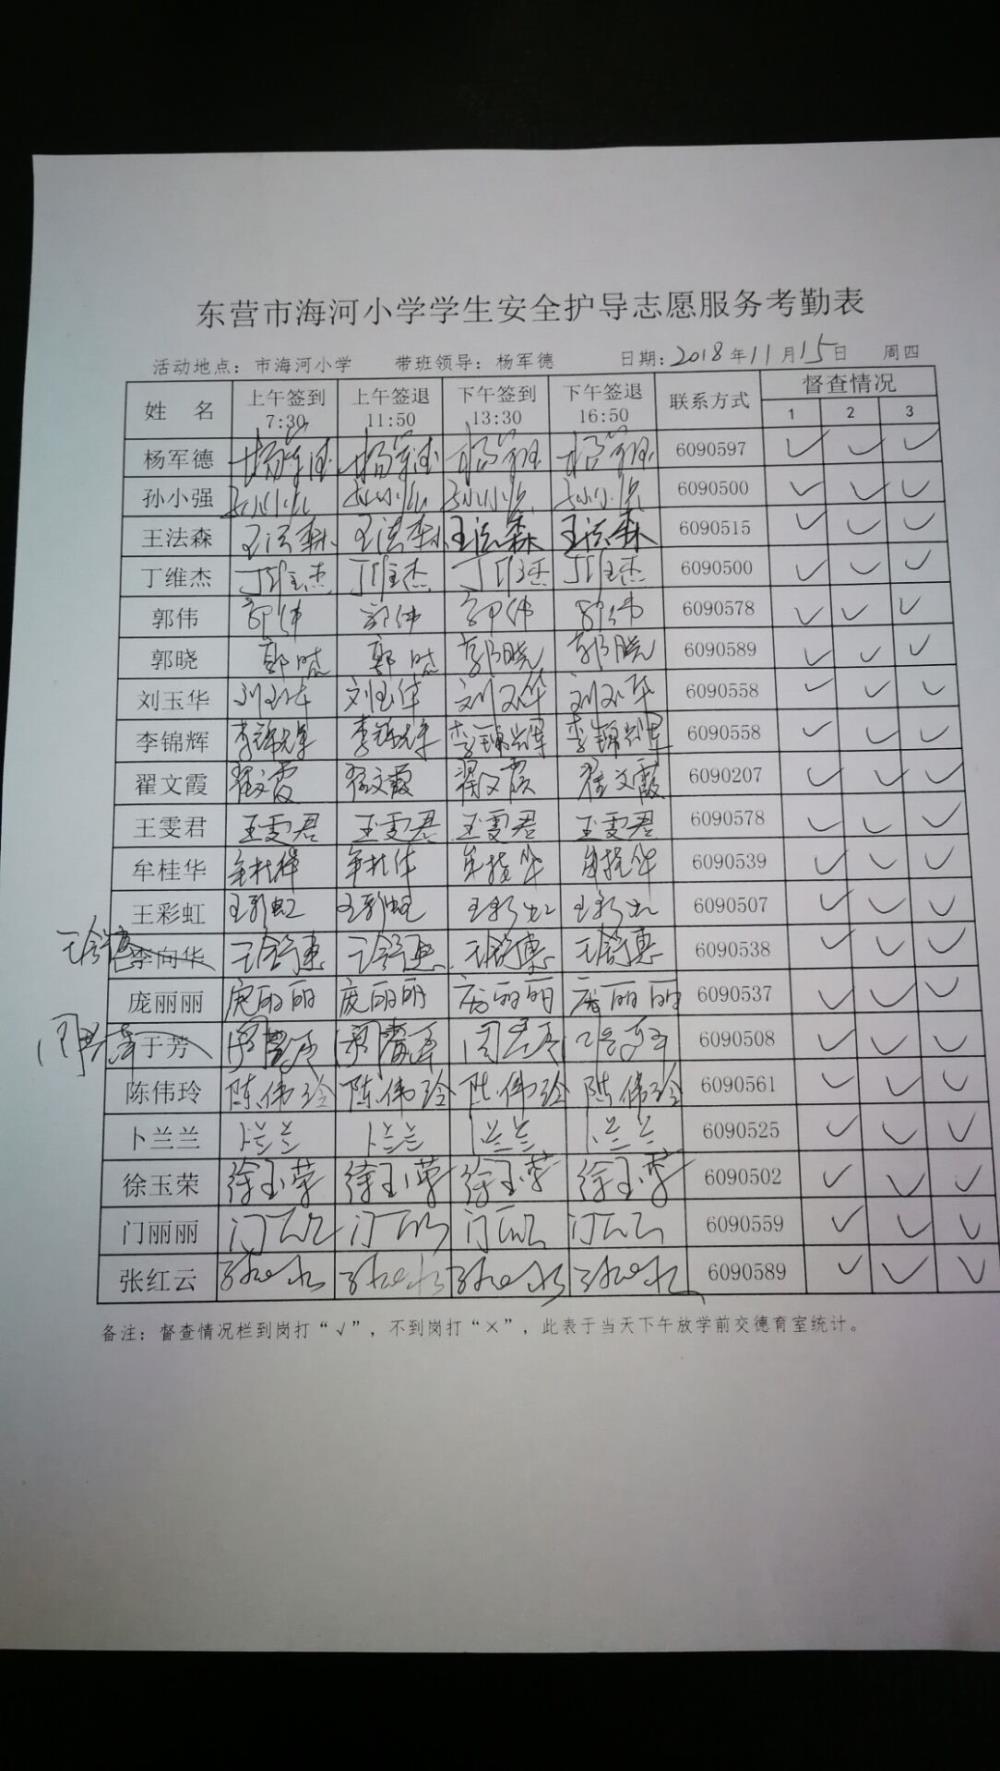 东营市海河小学学生安全护导志愿服务考勤表
活动地点：市海河小学 带班领导：杨军德 日期：2018年11月15日 周四
姓 名 上午签到 7:30 上午签退 11:50 下午签到 13:30 下午签退 16:50 联系方式 督查情况 1 2 3
杨军德 杨军德 杨军德 杨军德 杨军德 6090597 ✓ ✓ ✓
孙小强 孙小强 孙小强 孙小强 孙小强 6090500 ✓ ✓ ✓
王法森 王法森 王法森 王法森 王法森 6090515 ✓ ✓ ✓
丁维杰 丁维杰 丁维杰 丁维杰 丁维杰 6090500 ✓ ✓ ✓
郭伟 郭伟 郭伟 郭伟 郭伟 6090578 ✓ ✓ ✓
郭晓 郭晓 郭晓 郭晓 郭晓 6090589 ✓ ✓ ✓
刘玉华 刘玉华 刘玉华 刘玉华 刘玉华 6090558 ✓ ✓ ✓
李锦辉 李锦辉 李锦辉 李锦辉 李锦辉 6090558 ✓ ✓ ✓
翟文霞 翟文霞 翟文霞 翟文霞 翟文霞 6090207 ✓ ✓ ✓
王雯君 王雯君 王雯君 王雯君 王雯君 6090578 ✓ ✓ ✓
牟桂华 牟桂华 牟桂华 牟桂华 牟桂华 6090539 ✓ ✓ ✓
王彩虹 王彩虹 王彩虹 王彩虹 王彩虹 6090507 ✓ ✓ ✓
李向华 6090538 ✓ ✓ ✓
庞丽丽 庞丽丽 庞丽丽 庞丽丽 庞丽丽 6090537 ✓ ✓ ✓
于芳 6090508 ✓ ✓ ✓
陈伟玲 陈伟玲 陈伟玲 陈伟玲 陈伟玲 6090561 ✓ ✓ ✓
卜兰兰 卜兰兰 卜兰兰 卜兰兰 卜兰兰 6090525 ✓ ✓ ✓
徐玉荣 徐玉荣 徐玉荣 徐玉荣 徐玉荣 6090502 ✓ ✓ ✓
门丽丽 门丽丽 门丽丽 门丽丽 门丽丽 6090559 ✓ ✓ ✓
张红云 张红云 张红云 张红云 张红云 6090589 ✓ ✓ ✓
备注：督查情况栏到岗打“√”，不到岗打“×”，此表于当天下午放学前交德育室统计。